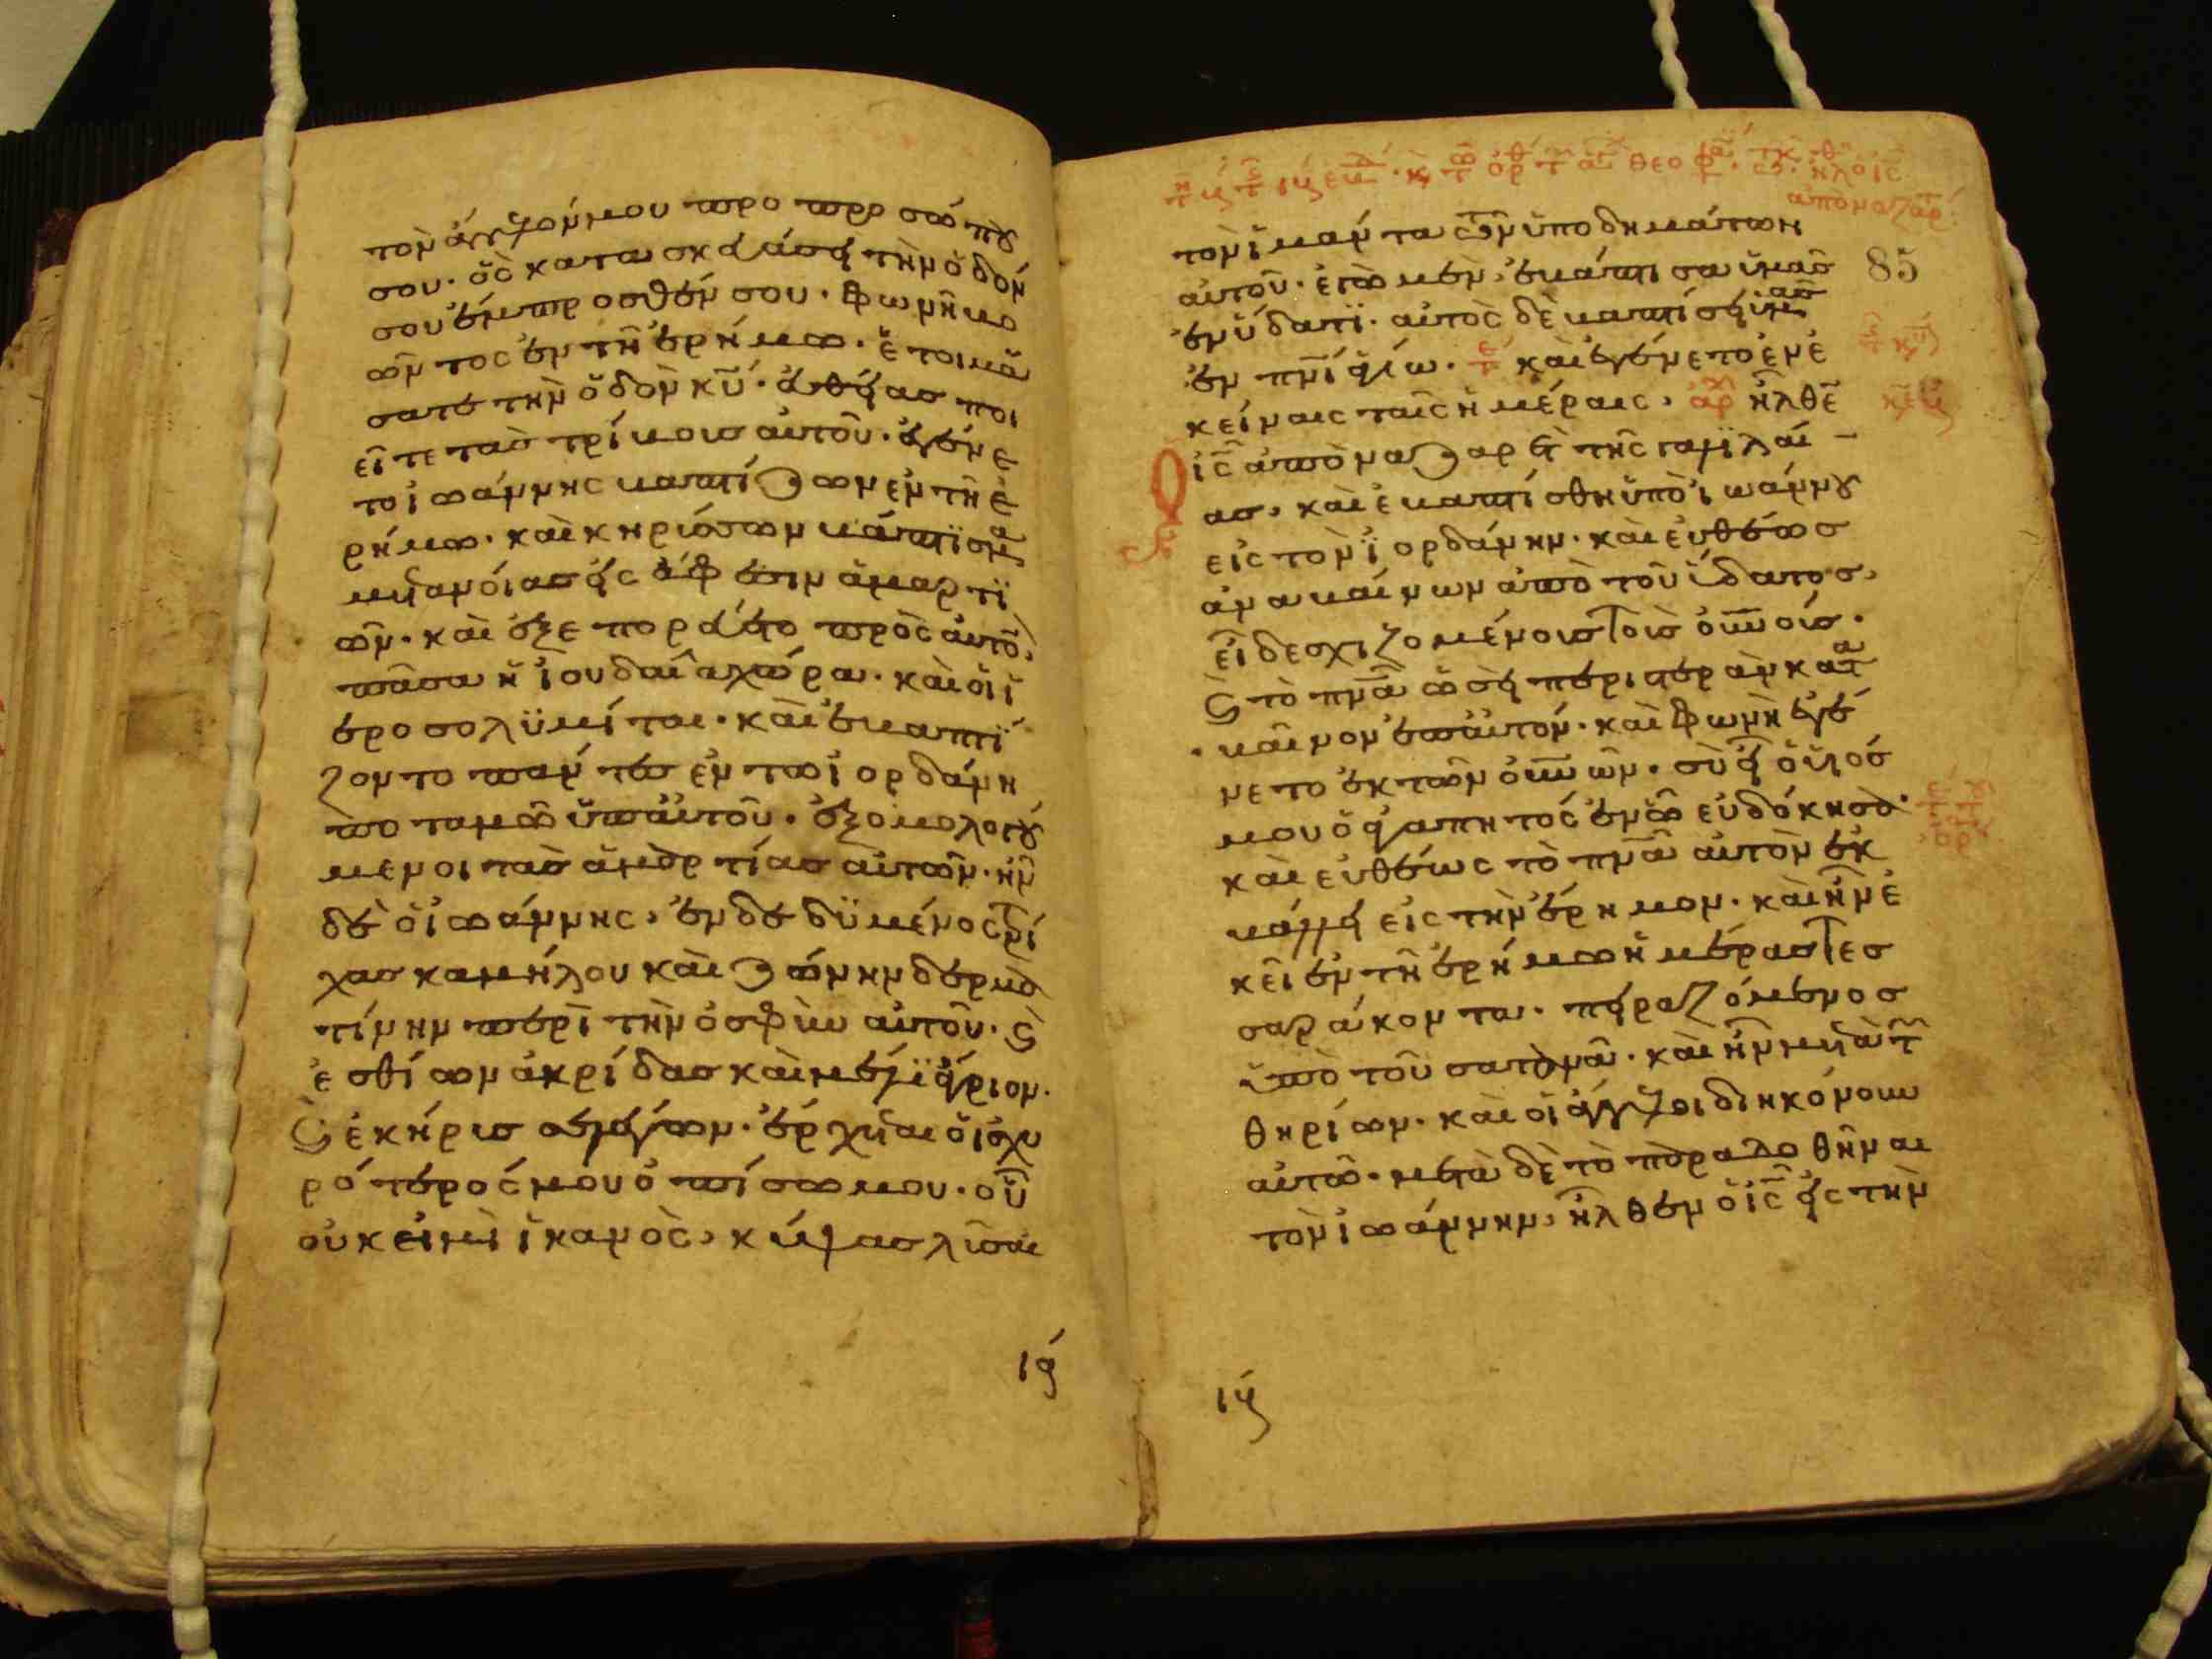 τὸν ἄγγελόν μου προ προσώπου
σου· ὃς κατασκευάσει τὴν ὁδόν
σου ἔμπροσθέν σου· φωνὴ βο
ῶντος ἐν τῆ ἐρήμω· ἑτοιμά
σατε τὴν ὁδὸν κυ· εὐθείας ποι
εῖτε τὰς τρίβους αὐτοῦ· ἐγένε
το ἰωάννης βαπτίζων ἐν τῆ ἐ
ρήμω· καὶ κηρύσσων βάπτισμα
μετανοίας εἰς ἄφεσιν ἁμαρτι
ῶν· καὶ ἐξεπορεύετο πρὸς αὐτὸν
πᾶσα ἡ ἰουδαία χώρα· καὶ οἱ ἱ
εροσολυμίται· καὶ ἐβαπτί
ζοντο πάντες ἐν τῶ ἰορδάνη
ποταμῶ ὑπ' αὐτοῦ· ἐξομολογού
μενοι τὰς ἁμαρτίας αὐτῶν· ἦν
δὲ ὁ ἰωάννης, ἐνδεδυμένος τρί
χας καμήλου καὶ ζώνην δερμα
τίνην περὶ τὴν ὀσφὺν αὐτοῦ· καὶ
ἐσθίων ἀκρίδας καὶ μέλι ἄγριον·
καὶ ἐκήρυσσε λέγων· ἔρχεται ὁ ἰσχυ
ρότερός μου ὀπίσω μου· οὗ
οὐκ εἰμὶ ἱκανὸς, κύψας λῦσαι
ις
τὸν ἱμάντα τῶν ὑποδημάτων
αὐτοῦ· ἐγὼ μὲν ἐβάπτισα ὑμᾶς
ἐν ὕδατι· αὐτὸς δὲ βαπτίσει ὑμᾶς
ἐν πνι ἁγίω· καὶ ἐγένετο ἐν ἐ
κείναις ταῖς ἡμέραις, ἦλθεν
ις ἀπὸ ναζαρὲτ τῆς γαλιλαί
ας, καὶ ἐβαπτίσθη ὑπὸ ἰωάννου
εἰς τὸν ἰορδάνην· καὶ εὐθέως
ἀναβαίνων ἀπὸ τοῦ ὕδατος,
εἶδε σχιζομένους τοὺς οὐνούς·
καὶ τὸ πνα ὡσεὶ περιστερὰν κατα
βαῖνον ἐπ' αὐτόν· καὶ φωνὴ ἐγέ
νετο ἐκ τῶν οὐνῶν· σὺ εἶ ὁ υἱός
μου ὁ ἀγαπητός ἐν ὧ εὐδόκησα·
καὶ εὐθέως τὸ πνα αὐτὸν ἐκ
βάλλει εἰς τὴν ἔρημον· καὶ ἦν ἐ
κεῖ ἐν τῆ ἐρήμω ἡμέρας τεσ
σαράκοντα· πειραζόμενος
ὑπὸ τοῦ σατανᾶ· καὶ ἦν μετὰ τῶν
θηρίων· καὶ οἱ ἄγγελοι διηκόνουν
αὐτῶ· μετὰ δὲ τὸ παραδοθῆναι
τὸν ἰωάννην, ἦλθεν ὁ ις εἰς τὴν
85